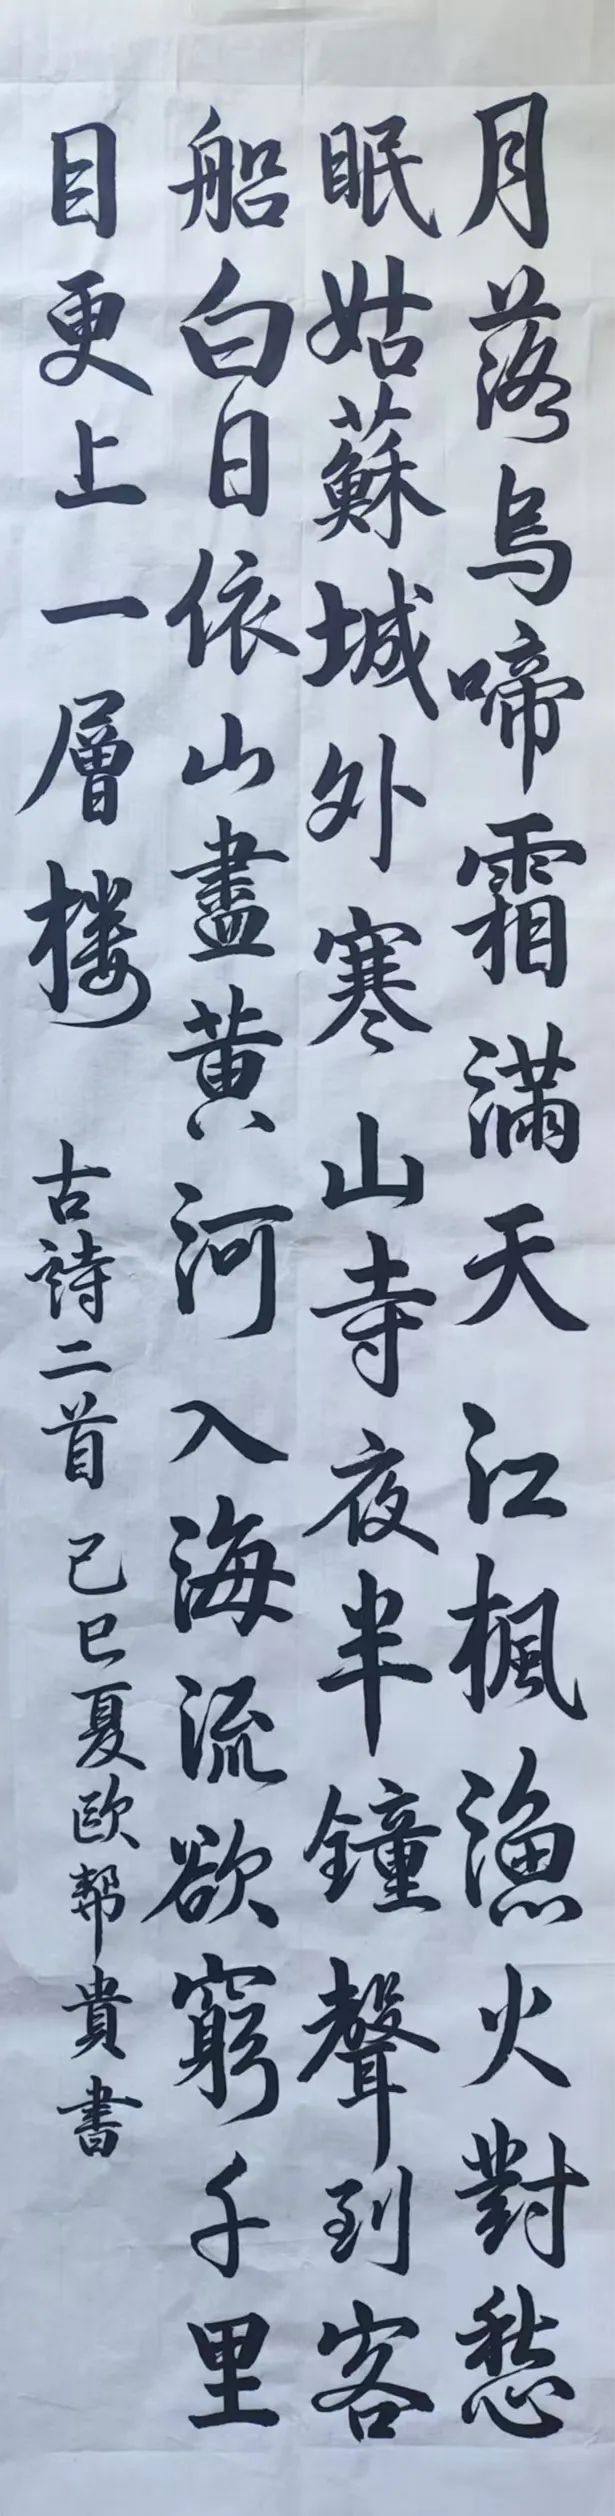 月落烏啼霜滿天江楓漁火對愁
眠姑蘇城外寒山寺夜半鐘聲到客
船白日依山盡黄河入海流欲窮千里
目更上一層楼
古詩二首己巳夏欧幇貴書